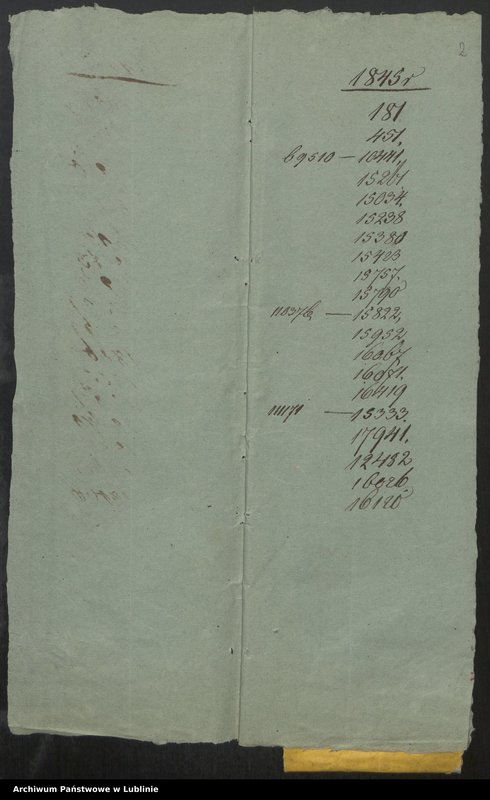 2
1845 r
181
451.
69510 — 10441.
15201
15034.
15238
15380
15423
15757.
15790
11837/6 — 15822.
15952
16067
16071.
16419
11171 — 15333.
17941.
12482
16026.
16120
Archiwum Państwowe w Lublinie